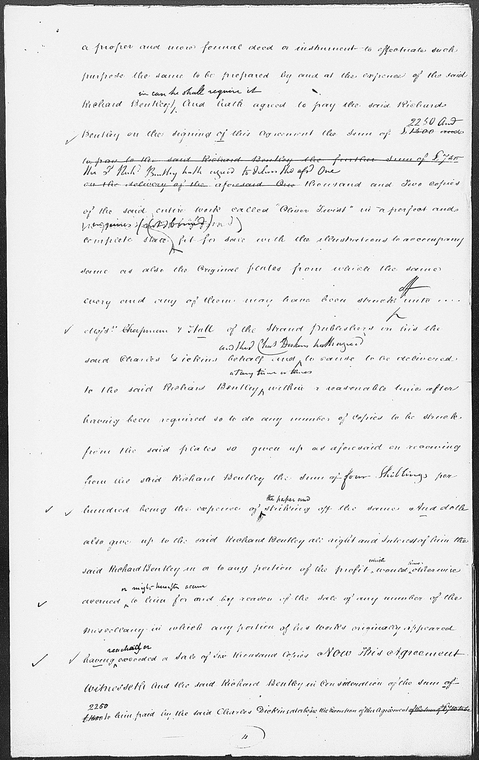 a proper and more formal deed or instrument to effectuate such
purpose the same to be prepared by and at the expence of the said
in case he shall require it
Richard Bentley And hath agreed to pay the said Richard
2250 And
Bentley on the signing of this Agreement the sum of £1500 and
to pay to the said Richard Bentley the further sum of £750
the sd Richd Bentley hath agreed to deliver the afsd One
on the delivery of the aforesaid One thousand and Two copies
of the said entire work called "Oliver Twist" in a perfect and
complete state fit for sale with the illustrations to accompany
same as also the Original plates from which the same
off
every and any of them may have been struck unto
Messrs Chapman & Hall of the Strand Publishers in his the
and the sd Chas Dickens hath agreed
said Charles Dickens behalf and to cause to be delivered
at any time or times
to the said Richard Bentley within a reasonable time after
having been required so to do any number of Copies to be struck
from the said plates so given up as aforesaid on receiving
from the said Richard Bentley the sum of four Shillings per
the paper and
hundred being the expence of striking off the same And doth
also give up to the said Richard Bentley all right and interest of him the
which
said Richard Bentley in or to any portion of the profit would otherwise
or might hereafter accrue
accrued to him for and by reason of the sale of any number of the
Miscellany in which any portion of his works originally appeared
reached or
having exceeded a Sale of six thousand Copies Now this Agreement
Witnesseth And the said Richard Bentley in Consideration of the sum of
2250
£1500 to him paid by the said Charles Dickens at or before the Execution of this Agreement